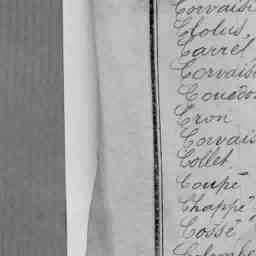 Corvaisi
Clolus,
Carrel
Corvais
Couëdo
Cron
Corvais
Collet
Coupé
Chappé
Cossé